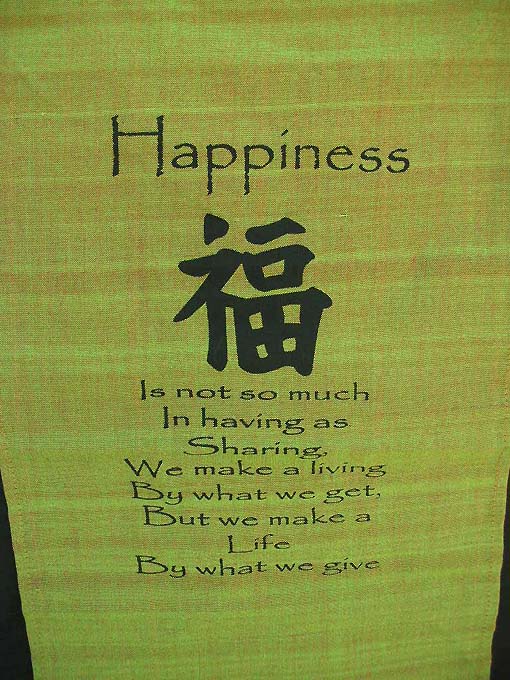 Happiness
福
Is not so much
In having as
Sharing,
We make a living
By what we get,
But we make a
Life
By what we give